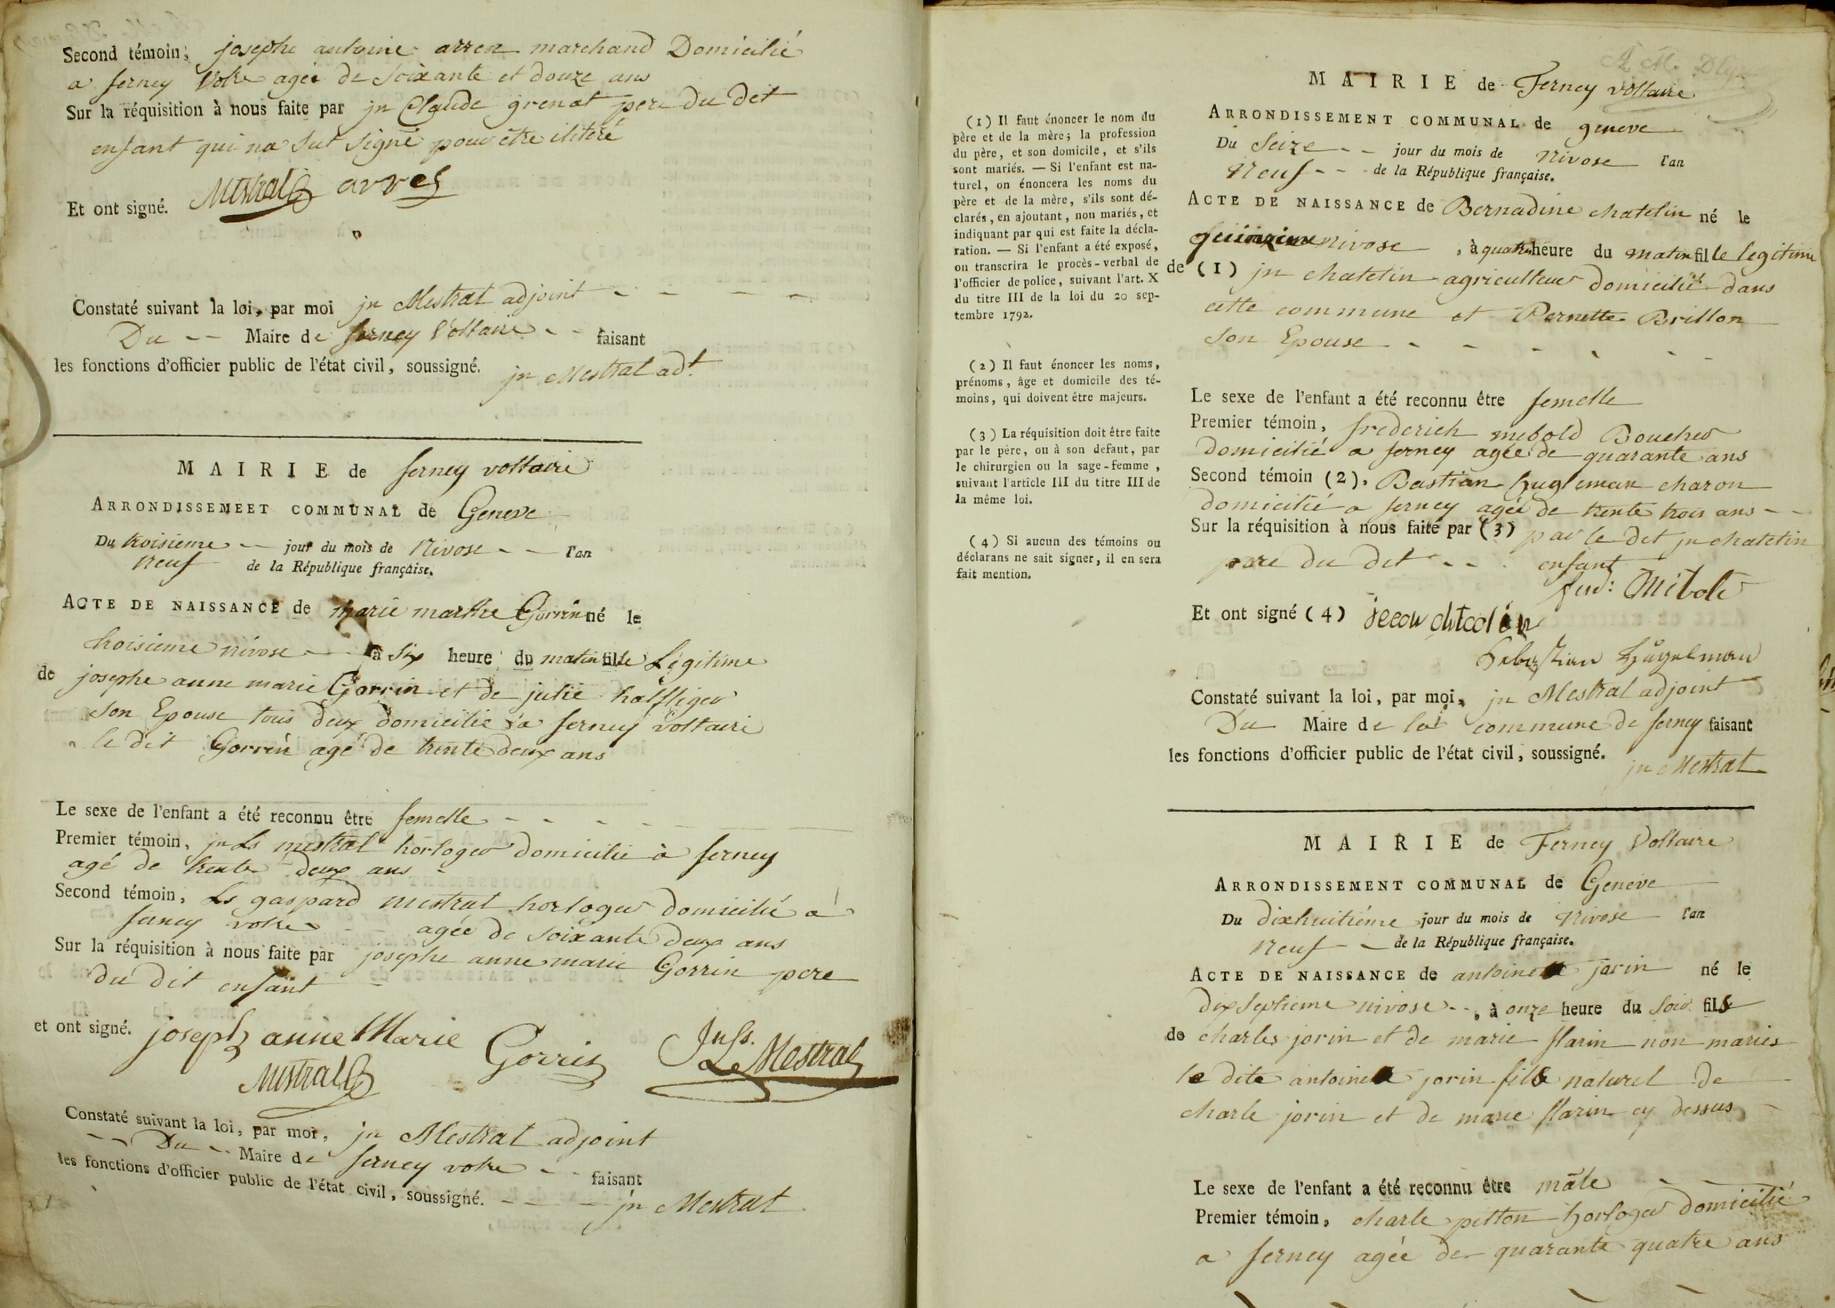 Second témoin, josephe antoine arren marchand Domicilié
a ferney Votre agée de soixante et douze ans
Sur la réquisition à nous faite par jn Claude grenat pere du det
enfant qui na sut signé pour être ilitéré
Et ont signé. Mistral arren
Constaté suivant la loi, par moi jn Mestral adjoint
Du Maire de ferney Voltaire faisant
les fonctions d'officier public de l'état civil, soussigné. jn Mestral adt
MAIRIE de ferney voltaire
ARRONDISSEMEET COMMUNAL de Geneve
Du troisieme jour du mois de Nivose l'an
neuf de la République française.
ACTE DE NAISSANCE de marie marthe Gorrin né le
troisieme nivose à six heure du matin fille Légitime
de josephe anne marie Gorrin et de julie halfliger
son Epouse tous deux domicilié à ferney voltaire
le dit Gorrin agé de trente deux ans
Le sexe de l'enfant a été reconnu être femelle
Premier témoin, jn Ls mestral horloger domicilié à ferney
agé de trente deux ans
Second témoin, Ls gaspard mestral horloger domicilié a
ferney votre agée de soixante deux ans
Sur la réquisition à nous faite par josephe anne marie Gorrin pere
du dit enfant
et ont signé. joseph anne Marie Gorrin Jn Ls. Mestral
Mistral
Constaté suivant la loi, par moi, jn Mestral adjoint
Du Maire de ferney votre faisant
les fonctions d'officier public de l'état civil, soussigné. jn Mestral
(1) Il faut énoncer le nom du
père et de la mère; la profession
du père, et son domicile, et s'ils
sont mariés. — Si l'enfant est na-
turel, on énoncera les noms du
père et de la mère, s'ils sont dé-
clarés, en ajoutant, non mariés, et
indiquant par qui est faite la décla-
ration. — Si l'enfant a été exposé,
on transcrira le procès-verbal de
l'officier de police, suivant l'art. X
du titre III de la loi du 20 sep-
tembre 1792.
(2) Il faut énoncer les noms,
prénoms, âge et domicile des té-
moins, qui doivent être majeurs.
(3) La réquisition doit être faite
par le père, ou à son défaut, par
le chirurgien ou la sage-femme,
suivant l'article III du titre III de
la même loi.
(4) Si aucun des témoins ou
déclarans ne sait signer, il en sera
fait mention.
MAIRIE de Ferney voltaire
ARRONDISSEMENT COMMUNAL de geneve
Du Seize jour du mois de Nivose l'an
Neuf de la République française.
ACTE DE NAISSANCE de Bernadine chatelin né le
nivose, à quatre heure du matin fille legitime
de (1) jn chatelin agriculteur domicilié dans
cette commune et Pernette Brillon
son Epouse
Le sexe de l'enfant a été reconnu être femelle
Premier témoin, frederich mebold Boucher
domicilié a ferney agée de quarante ans
Second témoin (2), Bastian hugleman charon
domicilié a ferney agée de trente trois ans
Sur la réquisition à nous faite par (3) par le det jn chatelin
pere du det enfant
Et ont signé (4)
Constaté suivant la loi, par moi, jn Mestral adjoint
Du Maire de la commune de ferney faisant
les fonctions d'officier public de l'état civil, soussigné. jn Mestral
MAIRIE de Ferney Voltaire
ARRONDISSEMENT COMMUNAL de Geneve
Du dixhuitiéme jour du mois de Nivose l'an
Neuf de la République française.
ACTE DE NAISSANCE de antoine jorin né le
dix septieme nivose, à onze heure du soir fils
de charles jorin et de marie flarin non mariés
le dite antoine jorin fils naturel de
charle jorin et de marie flarin cy dessus
Le sexe de l'enfant a été reconnu être mâle
Premier témoin, charle pitton horloger domicilié
a ferney agée de quarante quatre ans